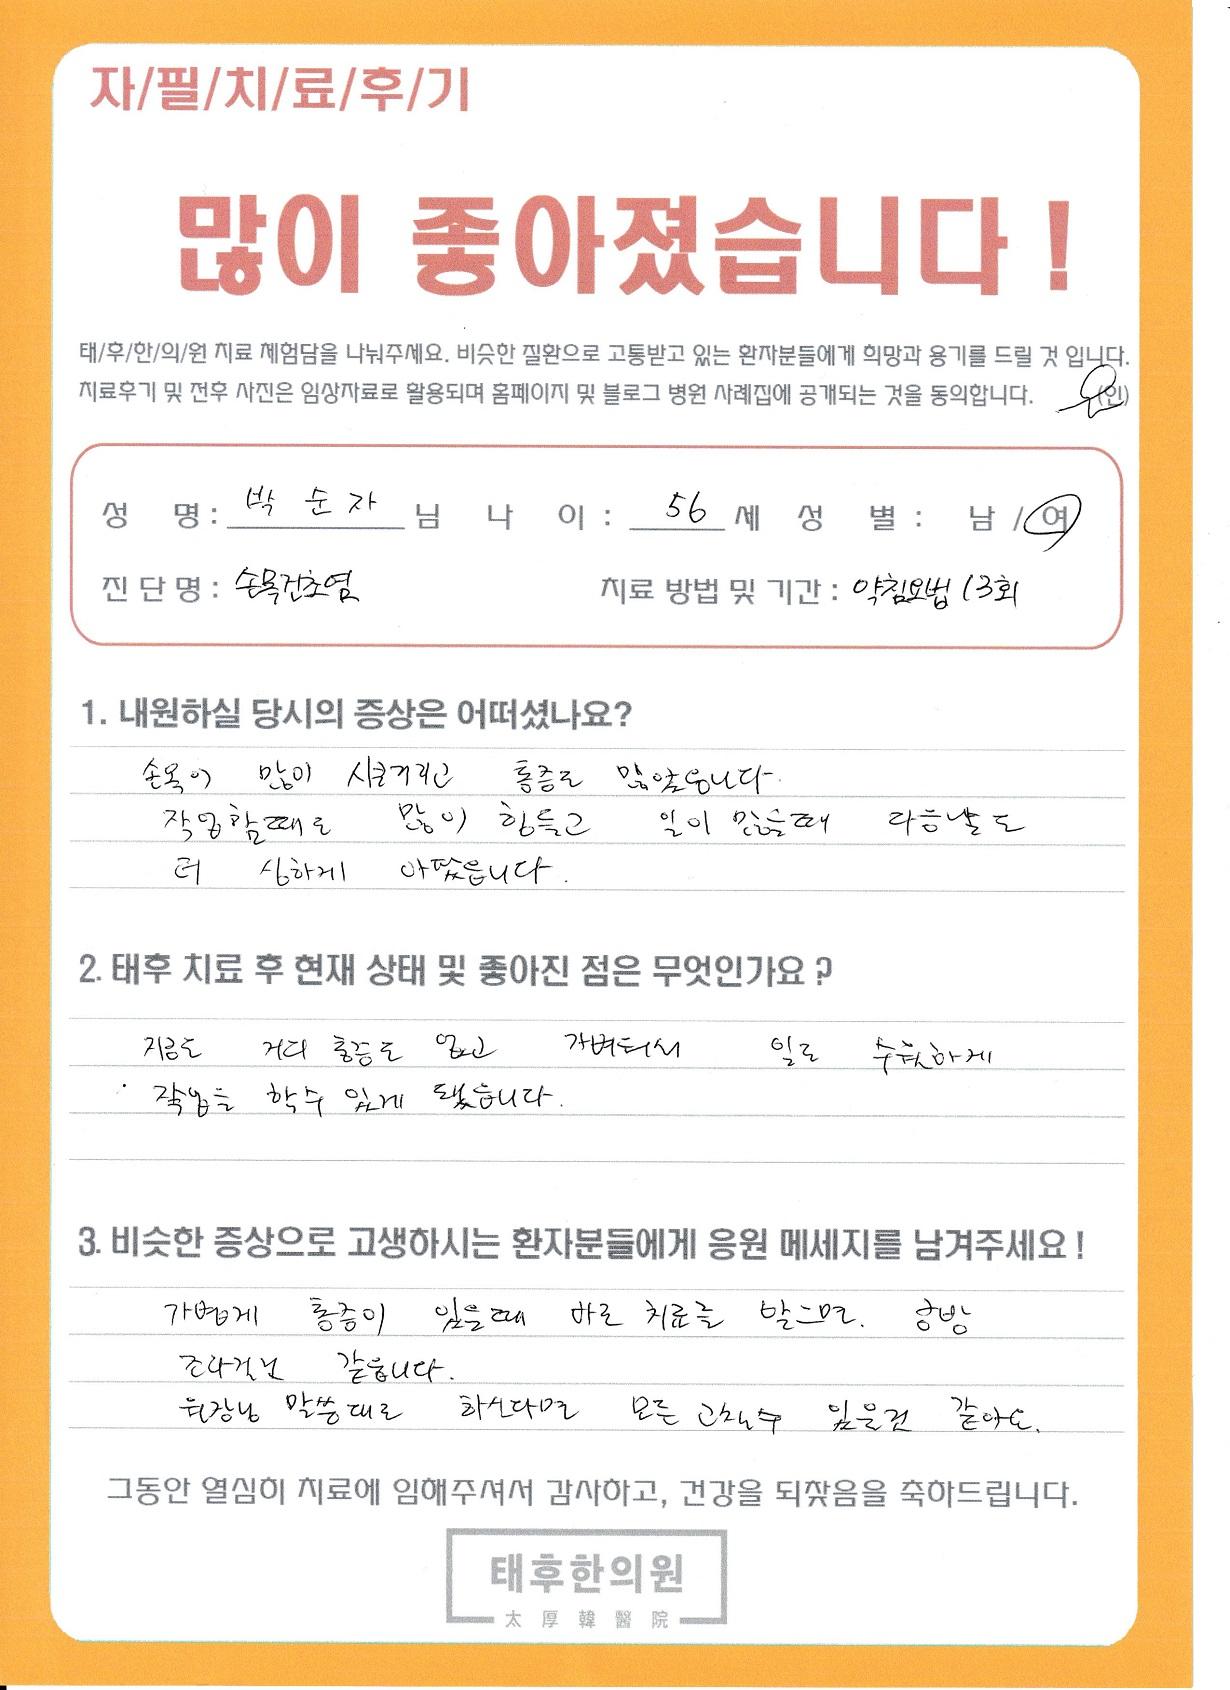 자/필/치/료/후/기
많이 좋아졌습니다 !
태/후/한/의/원 치료 체험담을 나눠주세요. 비슷한 질환으로 고통받고 있는 환자분들에게 희망과 용기를 드릴 것 입니다.
치료후기 및 전후 사진은 임상자료로 활용되며 홈페이지 및 블로그 병원 사례집에 공개되는 것을 동의합니다. (인)
성 명 : 박 순 자 님 나 이 : 56 세 성 별 : 남 / 여
진 단 명 : 손목건초염 치료 방법 및 기간 : 약침요법 13회
1. 내원하실 당시의 증상은 어떠셨나요?
손목이 많이 시큰거리고 통증도 많았읍니다.
작업할때도 많이 힘들고 일이 많을때 다음날도
더 심하게 아팠읍니다.
2. 태후 치료 후 현재 상태 및 좋아진 점은 무엇인가요 ?
지금은 거의 통증도 없고 가벼워서 일도 수월하게
작업을 할수 있게 됐읍니다.
3. 비슷한 증상으로 고생하시는 환자분들에게 응원 메세지를 남겨주세요 !
가볍게 통증이 있을때 바로 치료를 받으면. 금방
좋아질것 같읍니다.
원장님 말씀대로 하신다면 모든 고칠수 있을것 같아요.
그동안 열심히 치료에 임해주셔서 감사하고, 건강을 되찾음을 축하드립니다.
태후한의원
太 厚 韓 醫 院